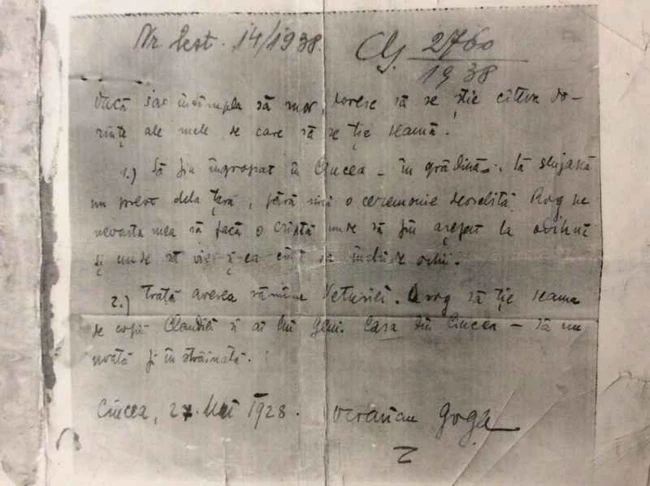 Nr test. 14/1938. CG 2760
1938
Dacă s'ar întâmpla să mor, doresc să se știe câteva do-
rinţe ale mele de care să se ţie seamă.
1.) Să fiu îngropat în Ciucea – în grădină. Să slujască
un preot dela ţară, fără nici o ceremonie deosebită. Rog pe
nevasta mea să facă o criptă unde să fiu aşezat la odihnă
şi unde să vie şi ea când va închide ochii.
2.) Toată averea rămâne Veturiei. O rog să ţie seama
de copiii Claudiei și ai lui Geni. Casa din Ciucea – să nu
 şi înstrăinată.
Ciucea, 27. Mai 1928. Octavian Goga